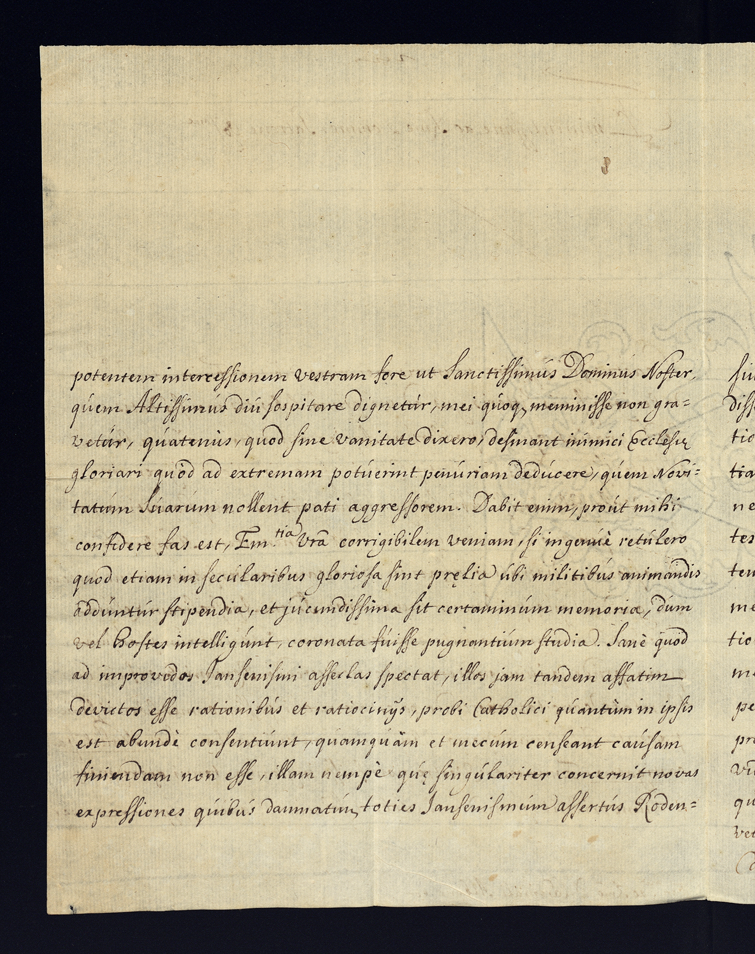 potentem intercessionem vestram fore ut Sanctissimús Dominús Noster,
qúem Altissimús diú sospitare dignetúr, mei qúoq, meminisse non gra=
vetúr, qúatenús, qúod sine vanitate dixero, desinant inimici Ecclesię
gloriari qúod ad extremam potúerint penúriam dedúcere, qúem Novi=
tatúm súarúm nollent pati aggressorem. Dabit enim, proút mihi
confidere fas est, Em.tia Vrã corrigibilem veniam, si ingenúè retúlero
quod etiam in secularibus gloriosa sint pręlia úbi militibús animandis
addúntúr stipendia, et júcúndissima sit certaminúm memoria, dúm
vel hostes intelligúnt, coronata fúisse pugnantiúm stúdia. Sanè qúod
ad improvidos Jansenismi asseclas spectat, illos jam tandem affatim
devictos esse rationibús et ratiocinijs, probi Catholici qúantùm in ipsis
est abúndè consentiúnt, qúamqúàm et mecúm censeant caúsam
finiendam non esse, illam nempè qúę singúlariter concernit novas
expressiones qúibús damnatúm toties Jansenismúm assertús Roden=
fú
diss
tio
tia
ne
tes
ten
me
tio
m
pe
pra
vi
qú
vet